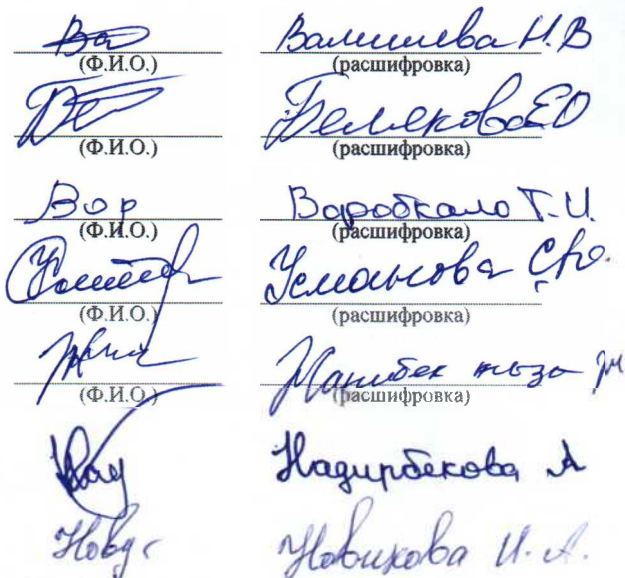 Валишева Н.В
(Ф.И.О.) (расшифровка)
Белякова Е О
(Ф.И.О.) (расшифровка)
Вор Воробкало Т.И.
(Ф.И.О.) (расшифровка)
Усманова С.Ю.
(Ф.И.О.) (расшифровка)
кызы
(Ф.И.О.) (расшифровка)
Надирбекова А
Новикова И.А.